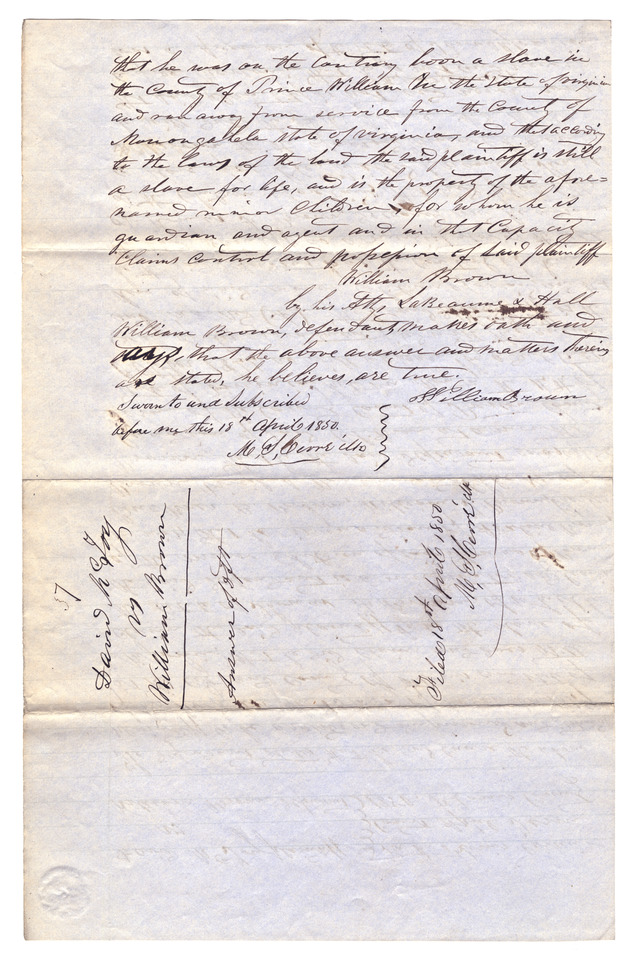 that he was on the contrary boon a slave in
the County of Prince William In the State of virginia
and ran away from service from the County of
Monongahala state of virginia, and that according
to the laws of the land the said plaintiff is still
a slave for life, and is the property of the afore=
named minor Children, for whom he is
guardian and agent and in that Capacity
Claims control and possession of said plaintiff
William Brown
by his Atty Labeaume & Hall
William Brown, defendant makes oath and
says, that the above answer and matters therein
are stated, he believes, are true.
William Brown
Sworn to and Subscribed
before me this 18th April 1850.
M. S. Cerré clk
37
David McFoy
vs
William Brown
Answer of Dft
Filed 18th April 1850
M. S. Cerré clk